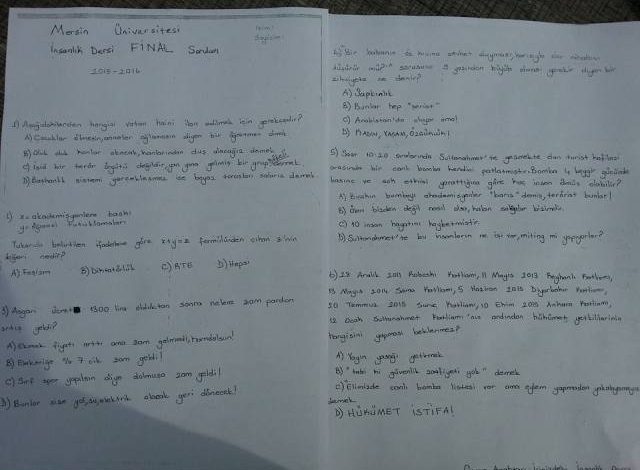 Mersin Üniversitesi
İnsanlık Dersi FİNAL Soruları
2015-2016
1) Aşağıdakilerden hangisi vatan haini ilan edilmek için gerekçedir?
A) Çocuklar ölmesin, anneler ağlamasın diyen bir öğretmen olmak
B) Oluk oluk kanlar akacak, kanlarından duş alacağız demek
C) Işid bir terör örgütü değildir, yan yana gelmiş bir grup demek
D) Başkanlık sistemi gerçekleşmez ise beyaz torosları salarız demek.
2) x = akademisyenlere baskı
y = Öğrenci Tutuklamaları
Yukarıda belirtilen ifadelere göre x+y=z formülünden çıkan z'nin
değeri nedir?
A) Faşizm B) Diktatörlük C) RTE D) Hepsi
3) Asgari ücret 1300 lira olduktan sonra nelere zam pardon
artış geldi?
A) Ekmek fiyatı arttı ama zam gelmedi, hamdolsun!
B) Elektriğe % 7 cik zam geldi!
C) Sırf spor yapılsın diye dolmuşa zam geldi!
D) Bunlar size yol, su, elektrik olarak geri dönecek!
4) Bir babanın öz kızına şehvet duyması, karısıyla olan nikahını
düşürür mü? sorusuna 9 yaşından büyük olması gerekir diyen bir
zihniyete ne denir?
A) Sapkınlık
B) Bunlar hep "şeriat"
C) Arabistan'da oluyor ama!
D) KADIN, YAŞAM, ÖZGÜRLÜK!
5) Saat 10:20 sıralarında Sultanahmet'te gezmekte olan turist kafilesi
arasında bir canlı bomba kendini patlatmıştır. Bomba 4 beygir gücünde
basınç ve ısı etkisi yarattığına göre kaç insan ölmüş olabilir?
A) Bırakın bombayı akademisyenler "barış" demiş, terörist bunlar!
B) Ölen bizden değil nasıl olsa, kalan sağlar bizimdir.
C) 10 insan hayatını kaybetmiştir.
D) Sultanahmet'te bu insanların ne işi var, miting mi yapıyorlar?
6) 28 Aralık 2011 Roboski Katliamı, 11 Mayıs 2013 Reyhanlı Katliamı,
13 Mayıs 2014 Soma Katliamı, 5 Haziran 2015 Diyarbakır Katliamı,
20 Temmuz 2015 Suruç Katliamı, 10 Ekim 2015 Ankara Katliamı,
12 Ocak Sultanahmet Katliamı'nın ardından hükümet yetkililerinin
hangisini yapması beklenmez?
A) Yayın yasağı getirmek
B) "tabi ki güvenlik zaafiyeti yok" demek
C) Elimizde canlı bomba listesi var ama eylem yapmadan yakalayamayız
demek.
D) HÜKÜMET İSTİFA!